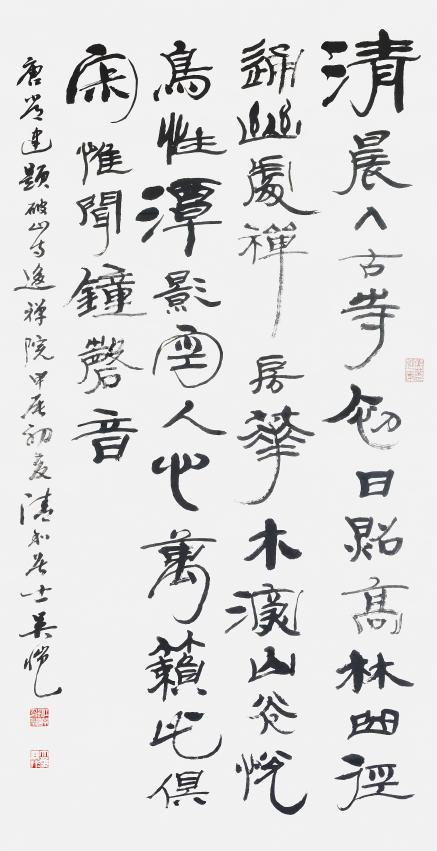 清晨入古寺初日照高林曲徑
通幽處禪房華木深山光悅
鳥性潭影空人心萬籟此俱
寂惟聞鐘磬音
唐常建題破山寺後禪院甲辰初夏清和居士吴